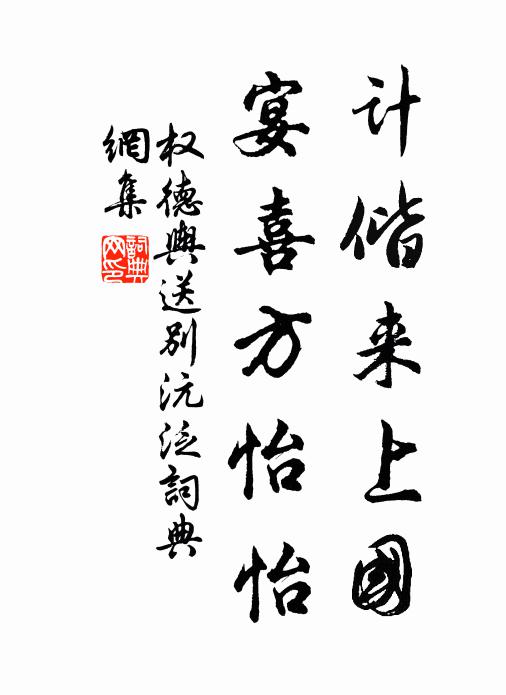 计偕来上國
宴喜方怡怡
权德輿送别沅泛詞典
網集
詞典
网印